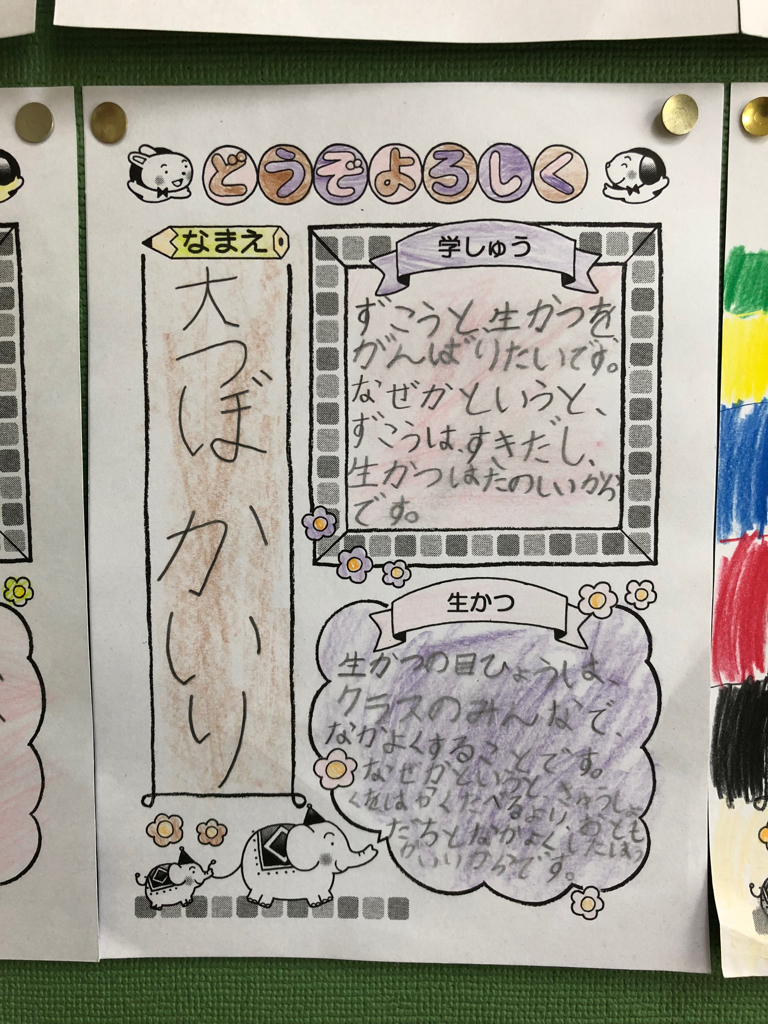 どうぞよろしく
なまえ
大つぼ かいり
学しゅう
ずこうと、生かつを
がんばりたいです。
なぜかというと、
ずこうは、すきだし、
生かつはたのしいから
です。
生かつ
生かつの目ひょうは、
クラスのみんなで、
なかよくすることです。
なぜかというと、きゅうしょ
くをはやくたべるより、おとも
だちとなかよくしたほう
がいいからです。